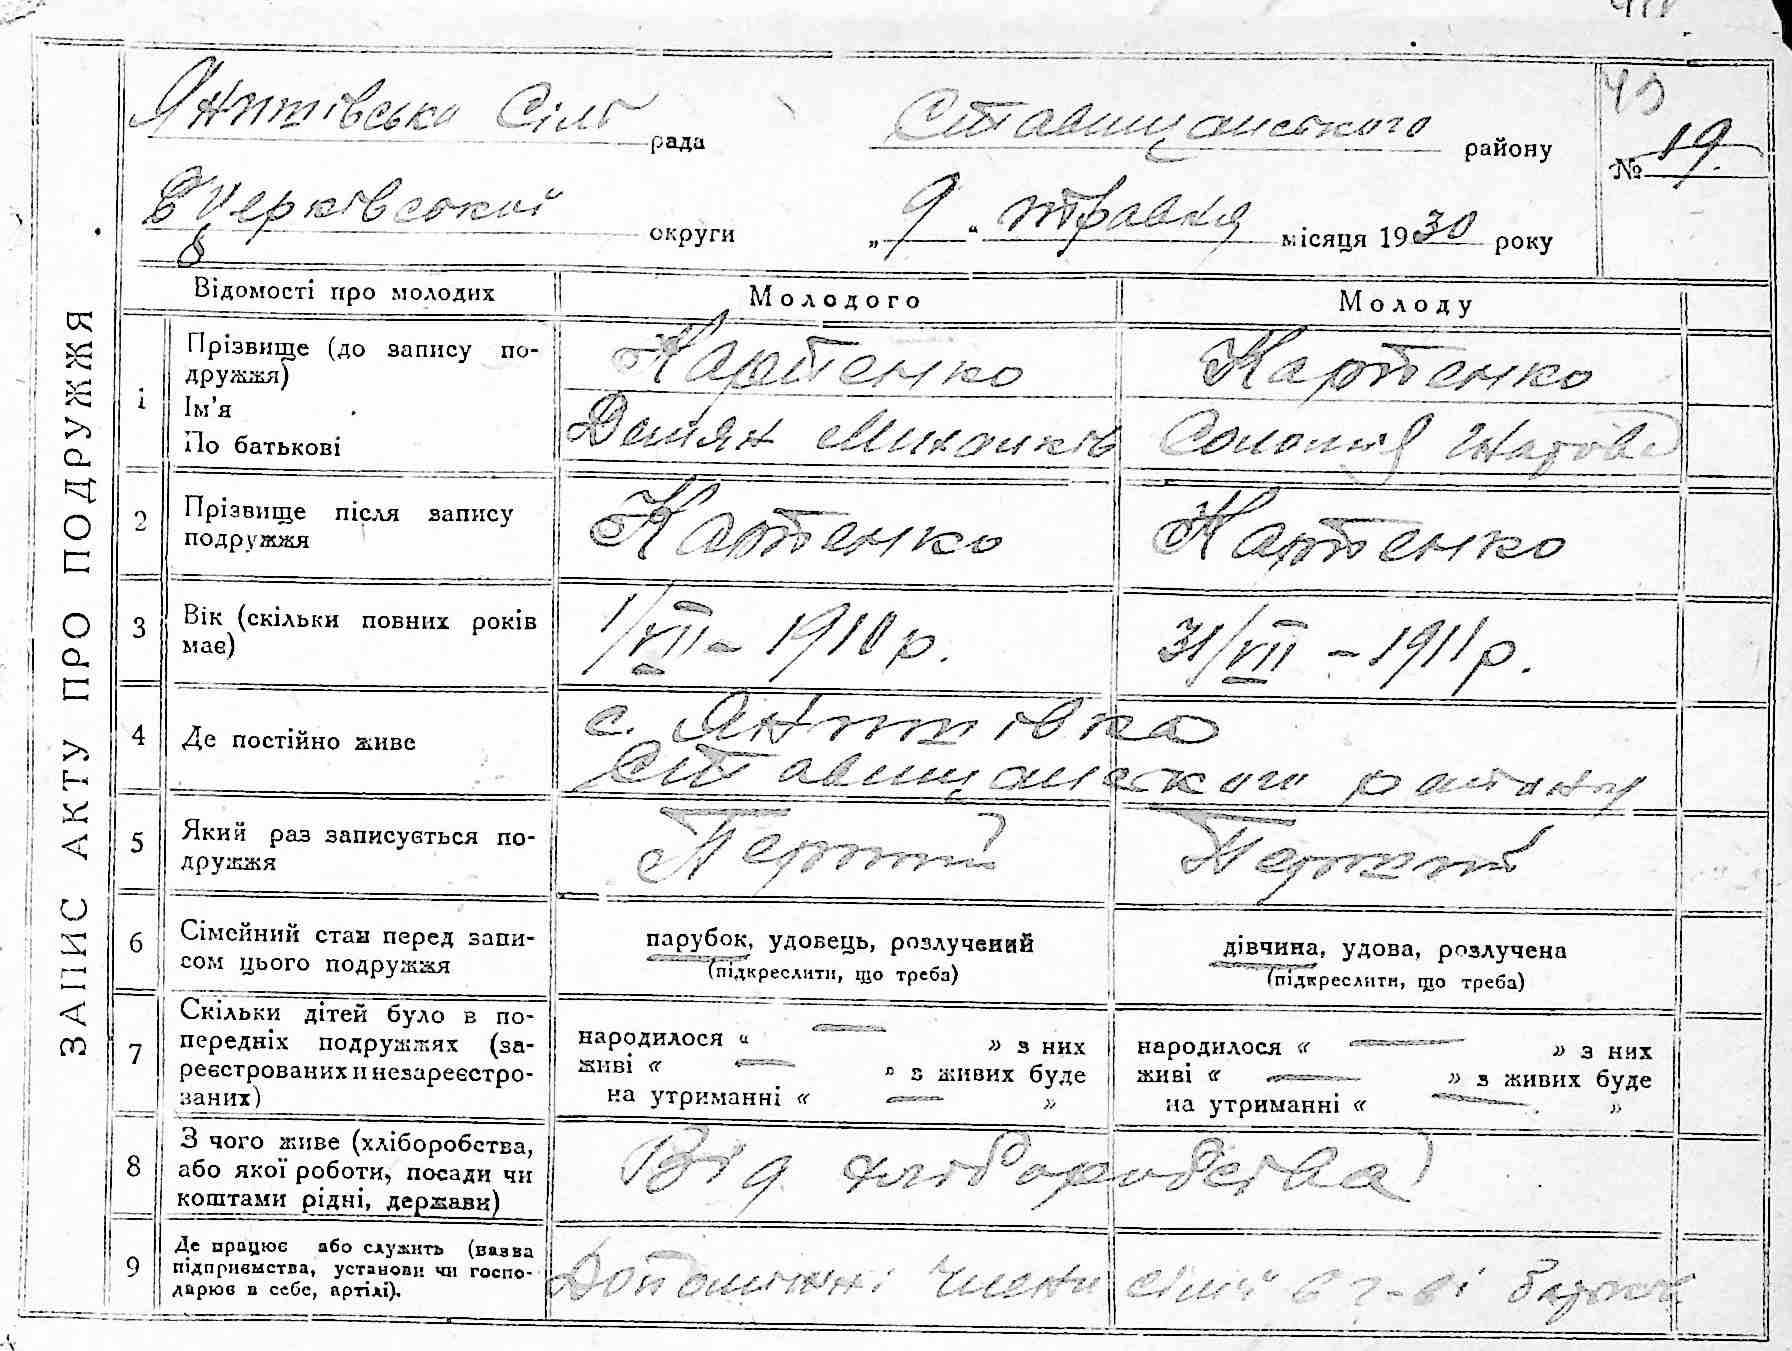 49
Янишівська Сіль рада Ставищанського району № 19.
Б Церківської округи „9“ травня місяця 1930 року
ЗАПИС АКТУ ПРО ПОДРУЖЖЯ
Відомості про молодих Молодого Молоду
1 Прізвище (до запису по-
дружжя)
Ім'я
По батькові
Картенко Картенко
Демян Соломія
2 Прізвище після запису
подружжя
Картенко Картенко
3 Вік (скільки повних років
має)
1/VII – 1910 р. 31/VII – 1911 р.
4 Де постійно живе
с. Янишівка
Ставищанського району
5 Який раз записується по-
дружжя
Перший Перший
6 Сімейний стан перед запи-
сом цього подружжя
парубок, удовець, розлучений
(підкреслити, що треба)
дівчина, удова, розлучена
(підкреслити, що треба)
7 Скільки дітей було в по-
передніх подружжях (за-
реєстрованих и незареєстро-
ваних)
народилося « — » з них
живі « — » з живих буде
на утриманні « — »
народилося « — » з них
живі « — » з живих буде
на утриманні « — »
8 З чого живе (хліборобства,
або якої роботи, посади чи
коштами рідні, держави)
Від хліборобства
9 Де працює або служить (назва
підприємства, установи чи госпо-
дарює в себе, артілі).
Допоміжні члени сімї в г-ві батьків